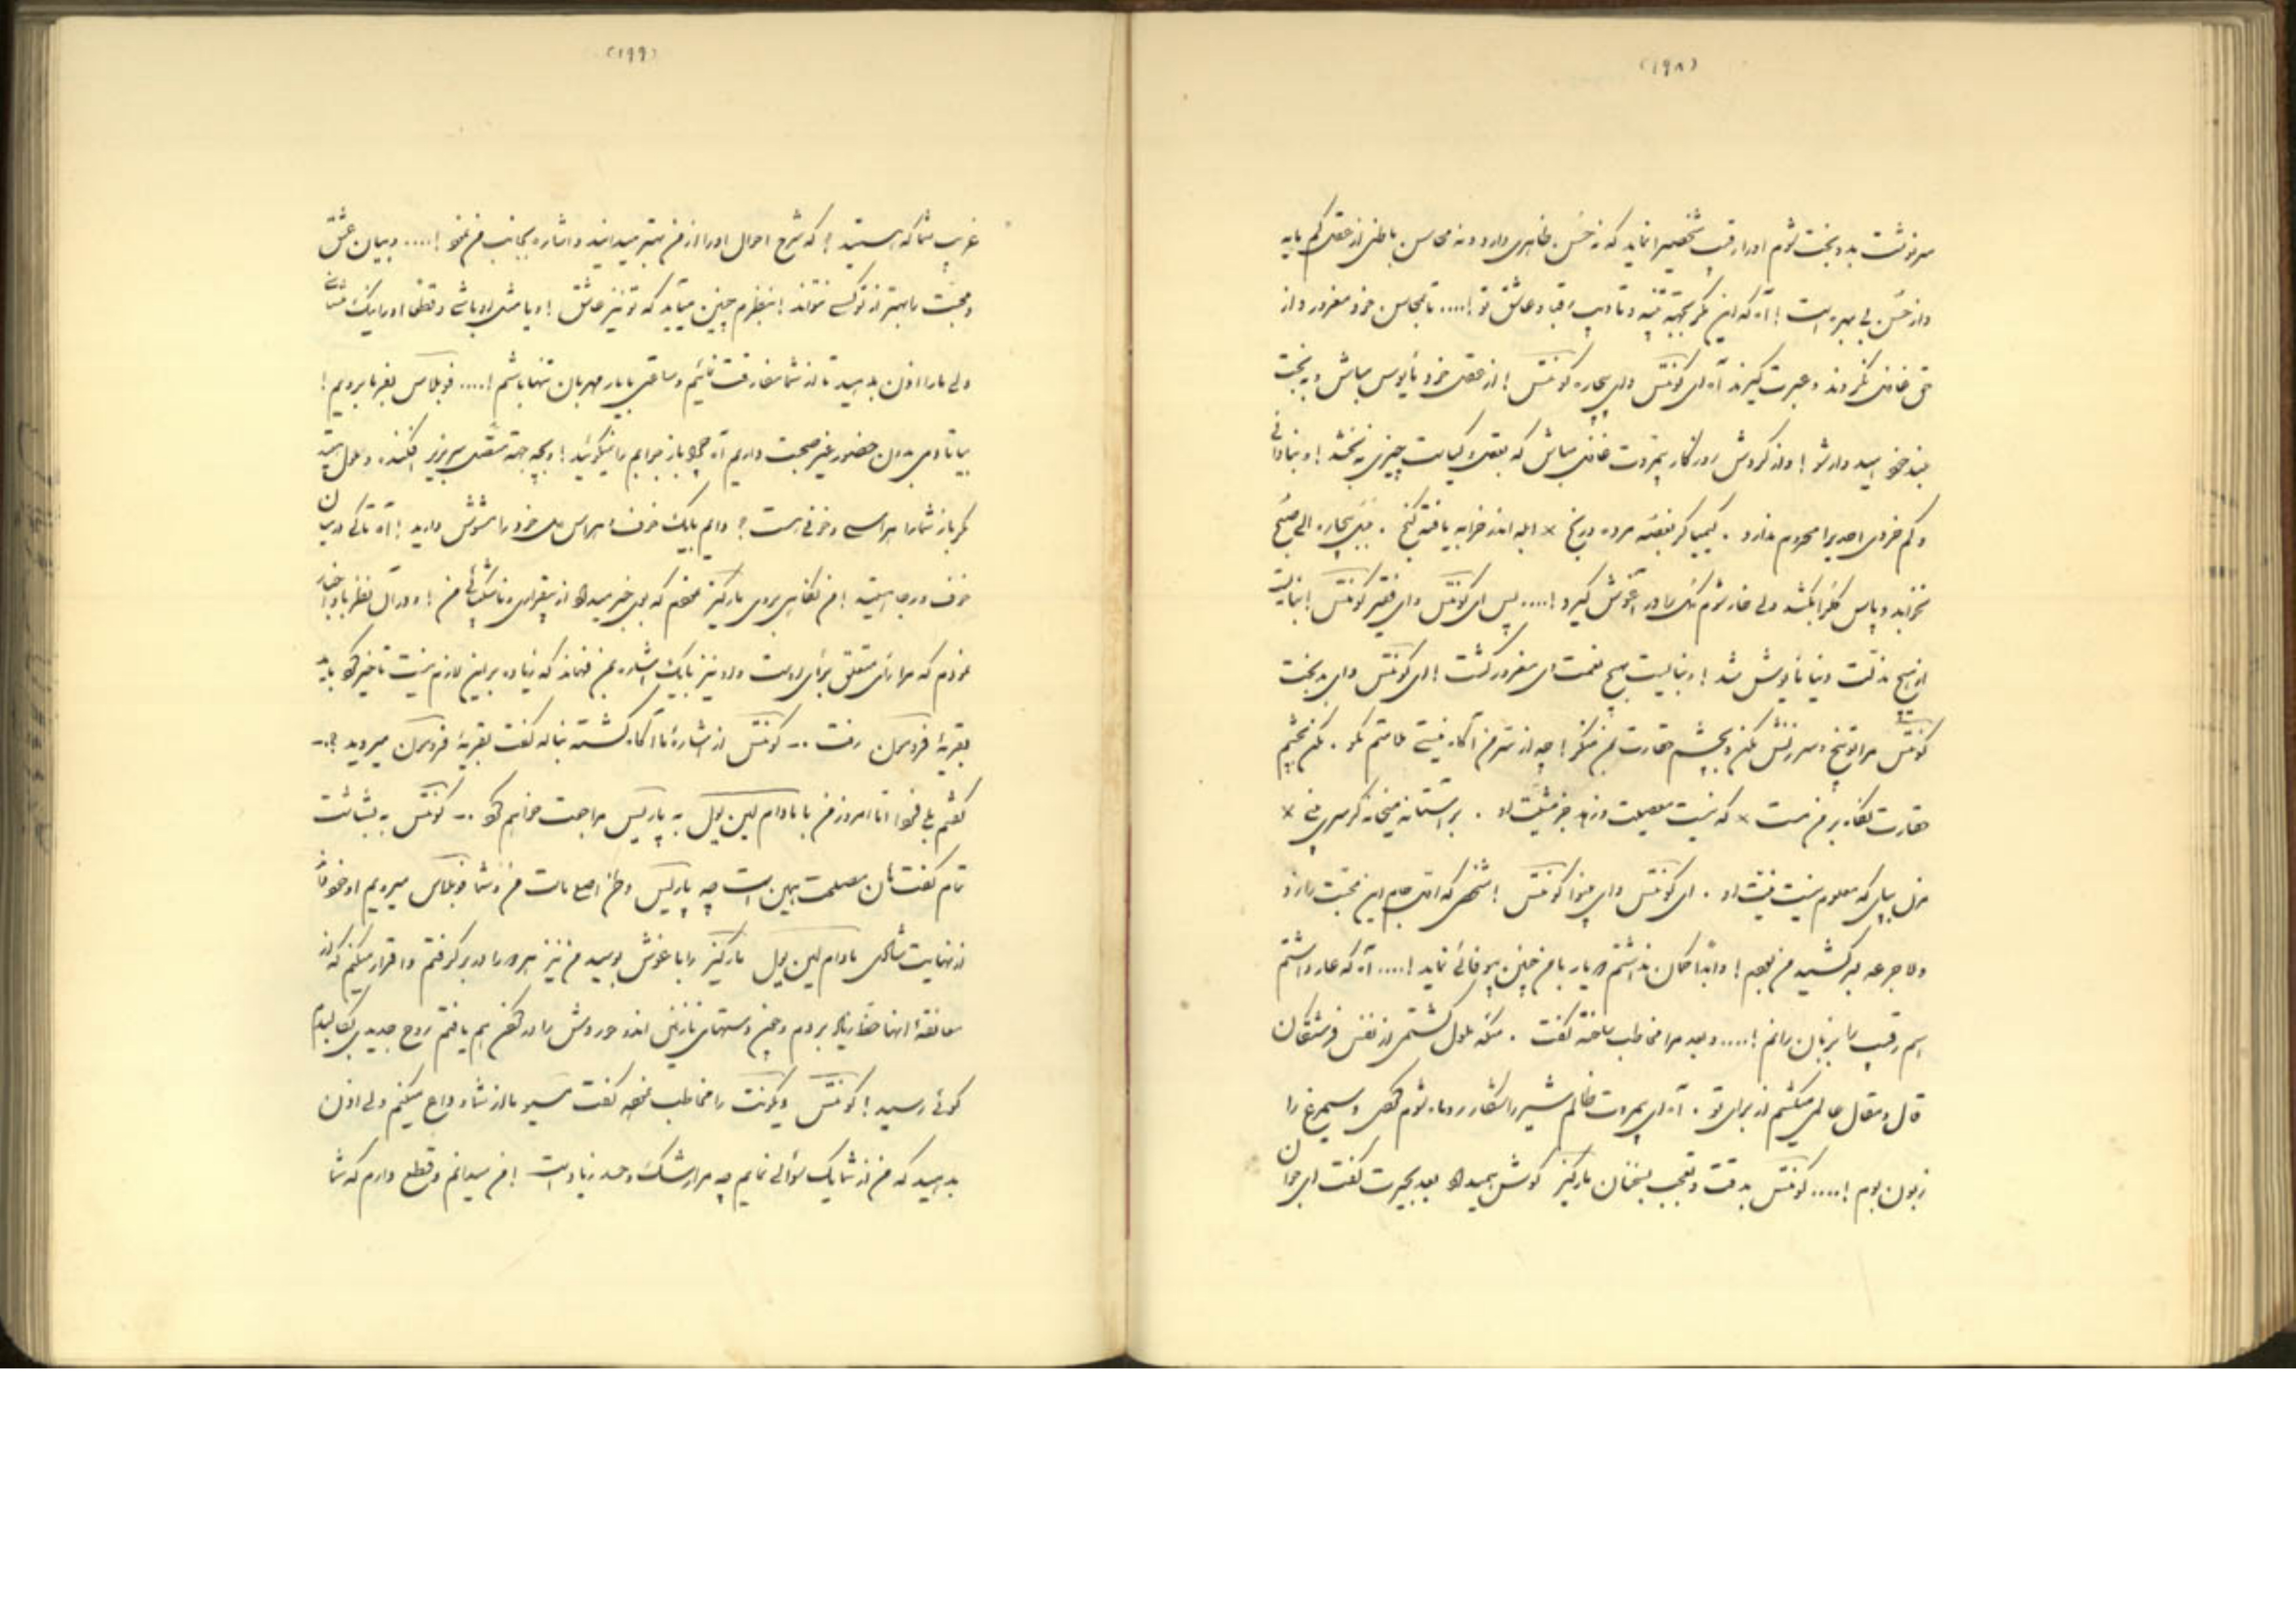 (۱۹۸)
سرنوشت بد و بخت شوم او را رقیب شخصی را نماید که نه حُسن ظاهری دارد و نه محاسن باطنی از عقل کم مایه
و از حُسن بی بهره است ! آه که این مگر بجهة تنبیه و تادیب رقبا و عشاق تو !.... تا بمحاسن خود مغرور و از
حق غافل نگردند و عبرت گیرند آه ای کونتس وای بیچاره کونتس ! از عقل خود مأیوس مباش و به بخت
بلند خود امیدوار شو ! و از گردش روزگار بیمروت غافل مباش که بعقل و کیاست چیزی نبخشد ! و بنادانی
و کم خردی احدی را محروم ندارد . کیمیاگر بغصه مرده و رنج × ابله اندر خرابه یافته گنج . بلبل بیچاره الی صبح
نخوابد و پاس گل را بکشد ولی خار شوم گل را در آغوش گیرد !.... پس ای کونتس وای فقیر کونتس !
از هیچ مذلت دنیا مأیوس نشد ! و نبایست بهیچ نعمت ای مغرور گشت ! ای کونتس وای بدبخت
کونتس مرا توبیخ و سرزنش مکن و بچشم حقارت بمن منگر ! چه از سرّ من آگاه نیستی ملامتم مگو . مکن بچشم
حقارت نگاه بر من مست × که نیست معصیت و زهد جز مشیّت او . بر آستانه میخانه گر سری بینی ×
مزن بپای که معلوم نیست نیّت او . ای کونتس وای بینوا کونتس ! شخصی که اول جام این محبّت را زد
و لا جرعه سر کشید من بودم ! و ابداً گمان نداشتم که یار با من چنین بیوفائی نماید !.... آه که عار داشتم
اسم رقیب را بزبان رانم !.... و بعد مرا مخاطب ساخته گفت . منکه ملول گشتمی از نفس فرشتگان
قال و مقال عالمی میکشم از برای تو . آه ای بیمروت ظالم شیر را شکار روباه شوم کردی و سیمرغ را
زبون بوم !.... کونتس بدقت و تعجب بسخنان مارکیز گوش میداد بعد بحیرت گفت ای جوان
(۱۹۹)
غریب شما که هستید ! که شرح احوال او را از من بهتر میدانید و اشاره بجانب من نمود !.... و بیان عشق
و محبّت را بهتر از تو کسی نتواند ! بنظرم چنین میآید که تو نیز عاشق ! او یا مثل او باشی و قطعا او را یک
ولی ما را اذن بدهید تا از شما مفارقت نمائیم و ساعتی با یار مهربان تنها باشم !.... نوبلاس بفرما برویم !
بیا تا دمی بدون حضور غیر صحبت داریم آه چرا باز جوابم را نمیگوئید ! و بچه جهة متصل سر بزیر افکنده و ملول هستید
مگر باز شما را هراسی و خوفی هست ؟ دایم بیک خوف و هراس دل خود را مشوش دارید ! آه تا کی در میان
خوف و رجا هستید ! من نگاهی بروی مارکیز نمودم که بمن خبر میداد از بیقراری و ناشکیبائی من ! و در آن نظر باو اخبار
نمودم که مرا رأی متعلق برأی اوست و او نیز بیک اشاره بمن فهماند که زیاده بر این لازم نیست تأخیر کرد باید
بقریهٔ فرومون رفت .. کونتس از اشارهٔ ما آگاه گشته بناله گفت بقریهٔ فرومون میروید ؟..
گفتم بلی فردا اما امروز من با مادام لین یول به پاریس مراجعت خواهم کرد .. کونتس به بشاشت
تمام گفت هان مصلحت همین است چه پاریس وطن اصلی ماست من و شما نوبلاس میرویم
از نهایت شادی مادام لین یول مارکیز را باغوش بوسید من نیز هر دو را در بر گرفتم و اقرار میکنم که از
معانقهٔ آنها حظ زیاد بردم و چون دستهای نازنین اندو حوروش را در گردن هم یافتم روح جدیدی بکالبدم
گوئی رسید ! کونتس ویکونت را مخاطب نموده گفت مسیو ما از شما وداع میکنیم ولی اذن
بدهید که من از شما یک سؤالی نمایم چه مرا رشک و حسد زیاد است ! من میدانم و قطع دارم که شما